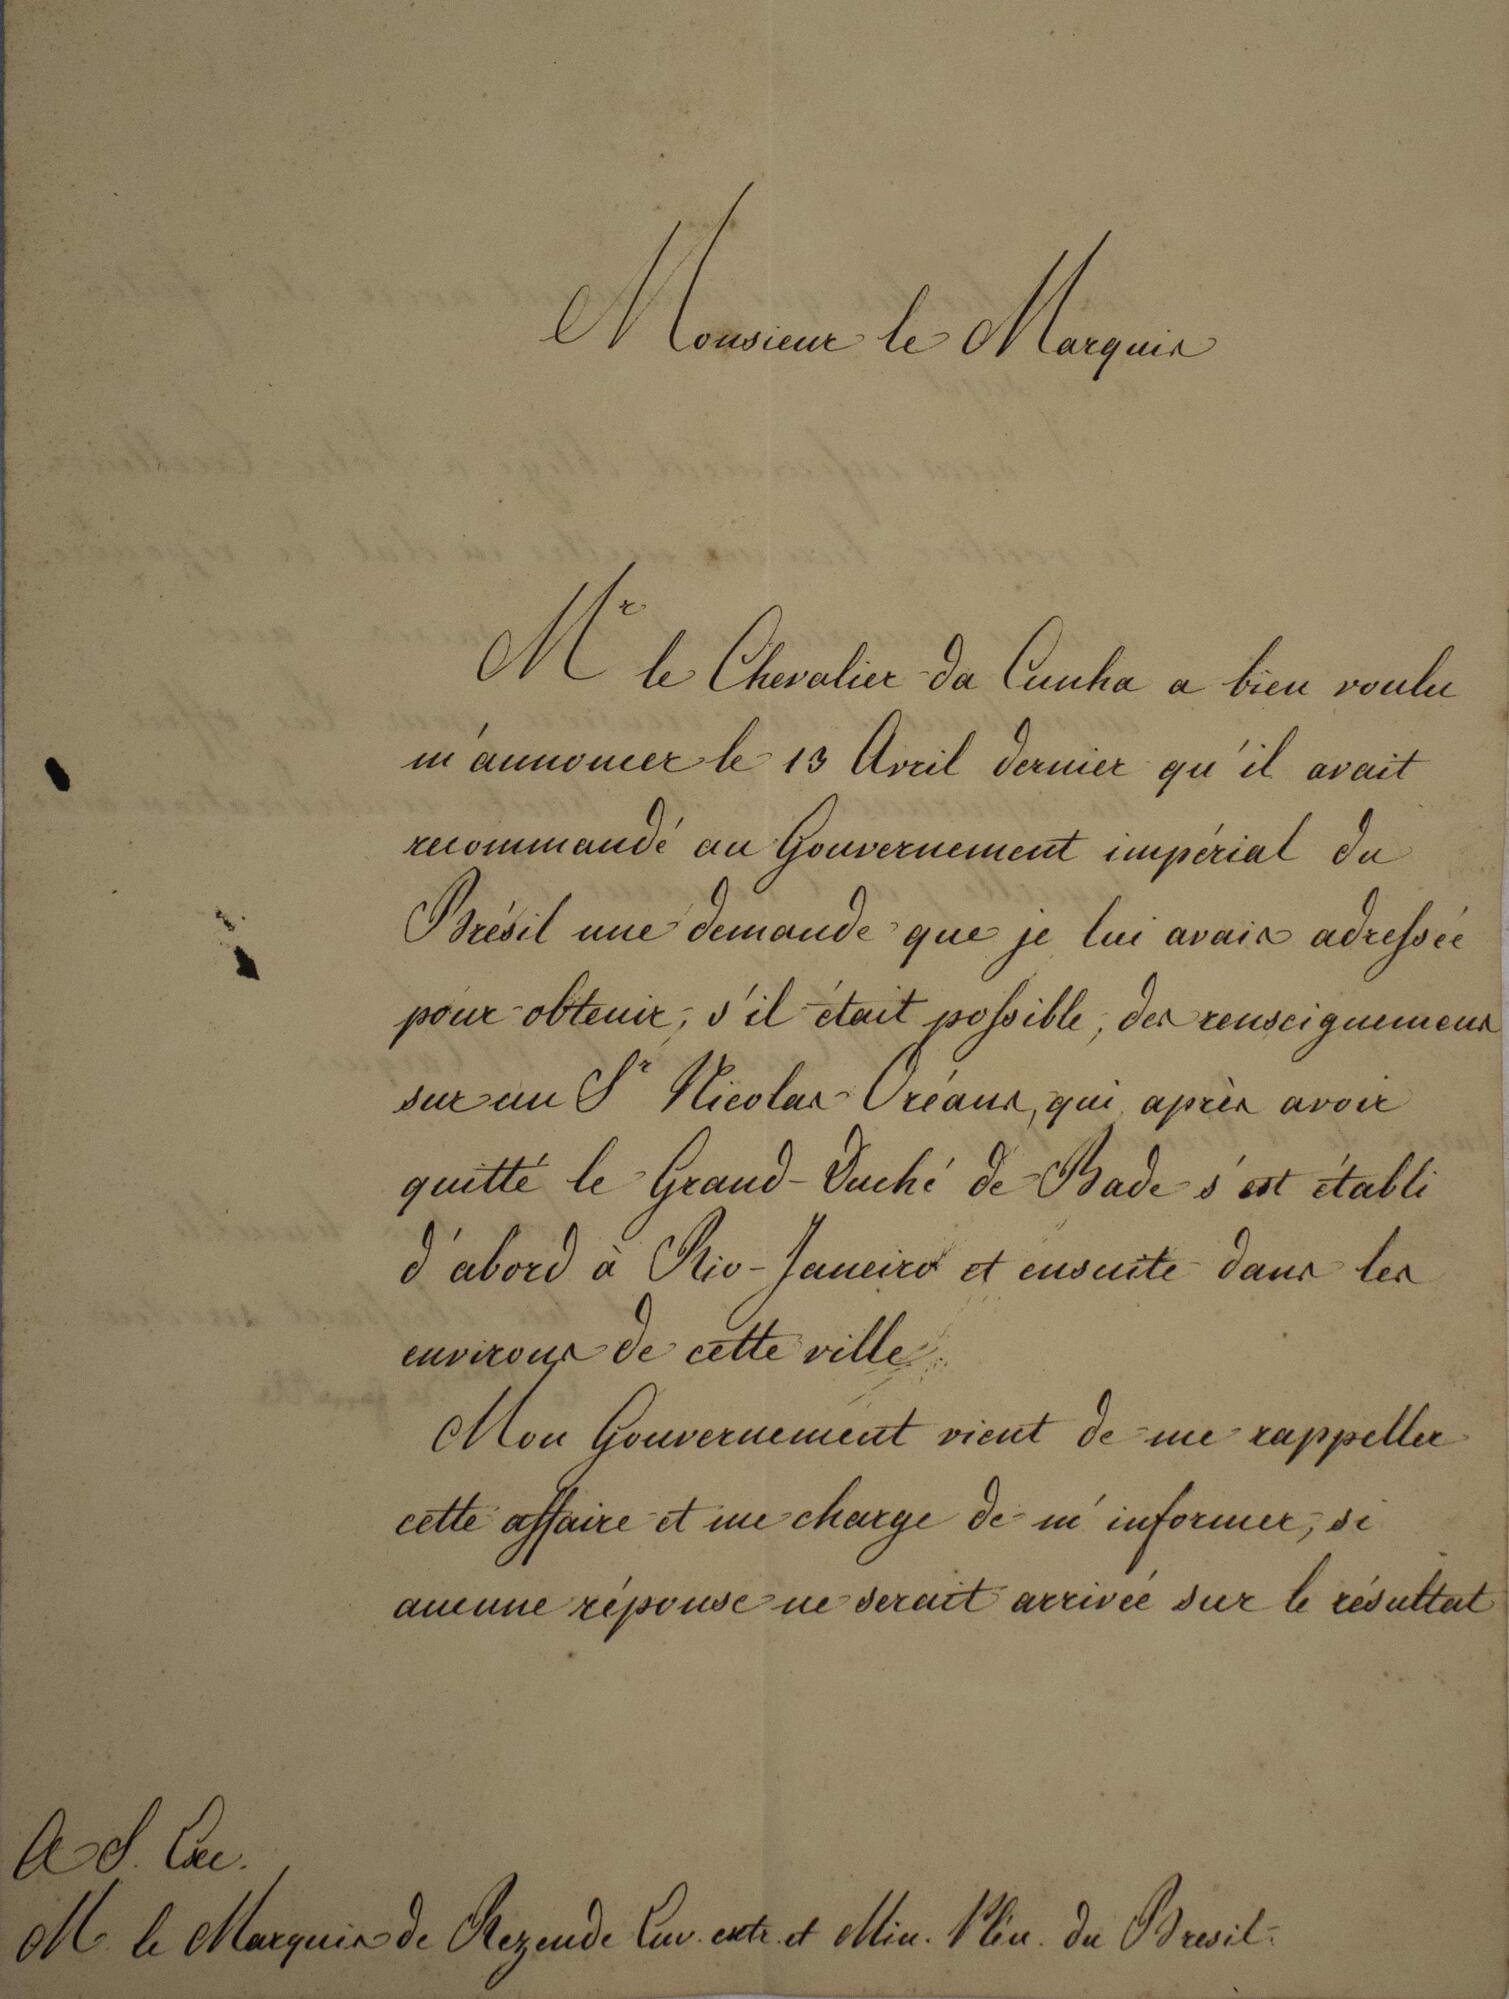 Monsieur le Marquis
Mr le Chevalier da Cunha a bien voulu
m'annoncer le 13 Avril dernier qu'il avait
recommandé au Gouvernement impérial du
Brésil une demande que je lui avais adressée
pour obtenir, s'il était possible, des renseignemens
sur un Sr Nicolas Oréans, qui après avoir
quitté le Grand-Duché de Bade s'est établi
d'abord à Rio-Janeiro et ensuite dans les
environs de cette ville.
Mon Gouvernement vient de me rappeller
cette affaire et me charge de m'informer, si
aucune réponse ne serait arrivée sur le résultat
A S. Exc.
M. le Marquis de Rezende Env. extr. et Min. Plén. du Bresil.